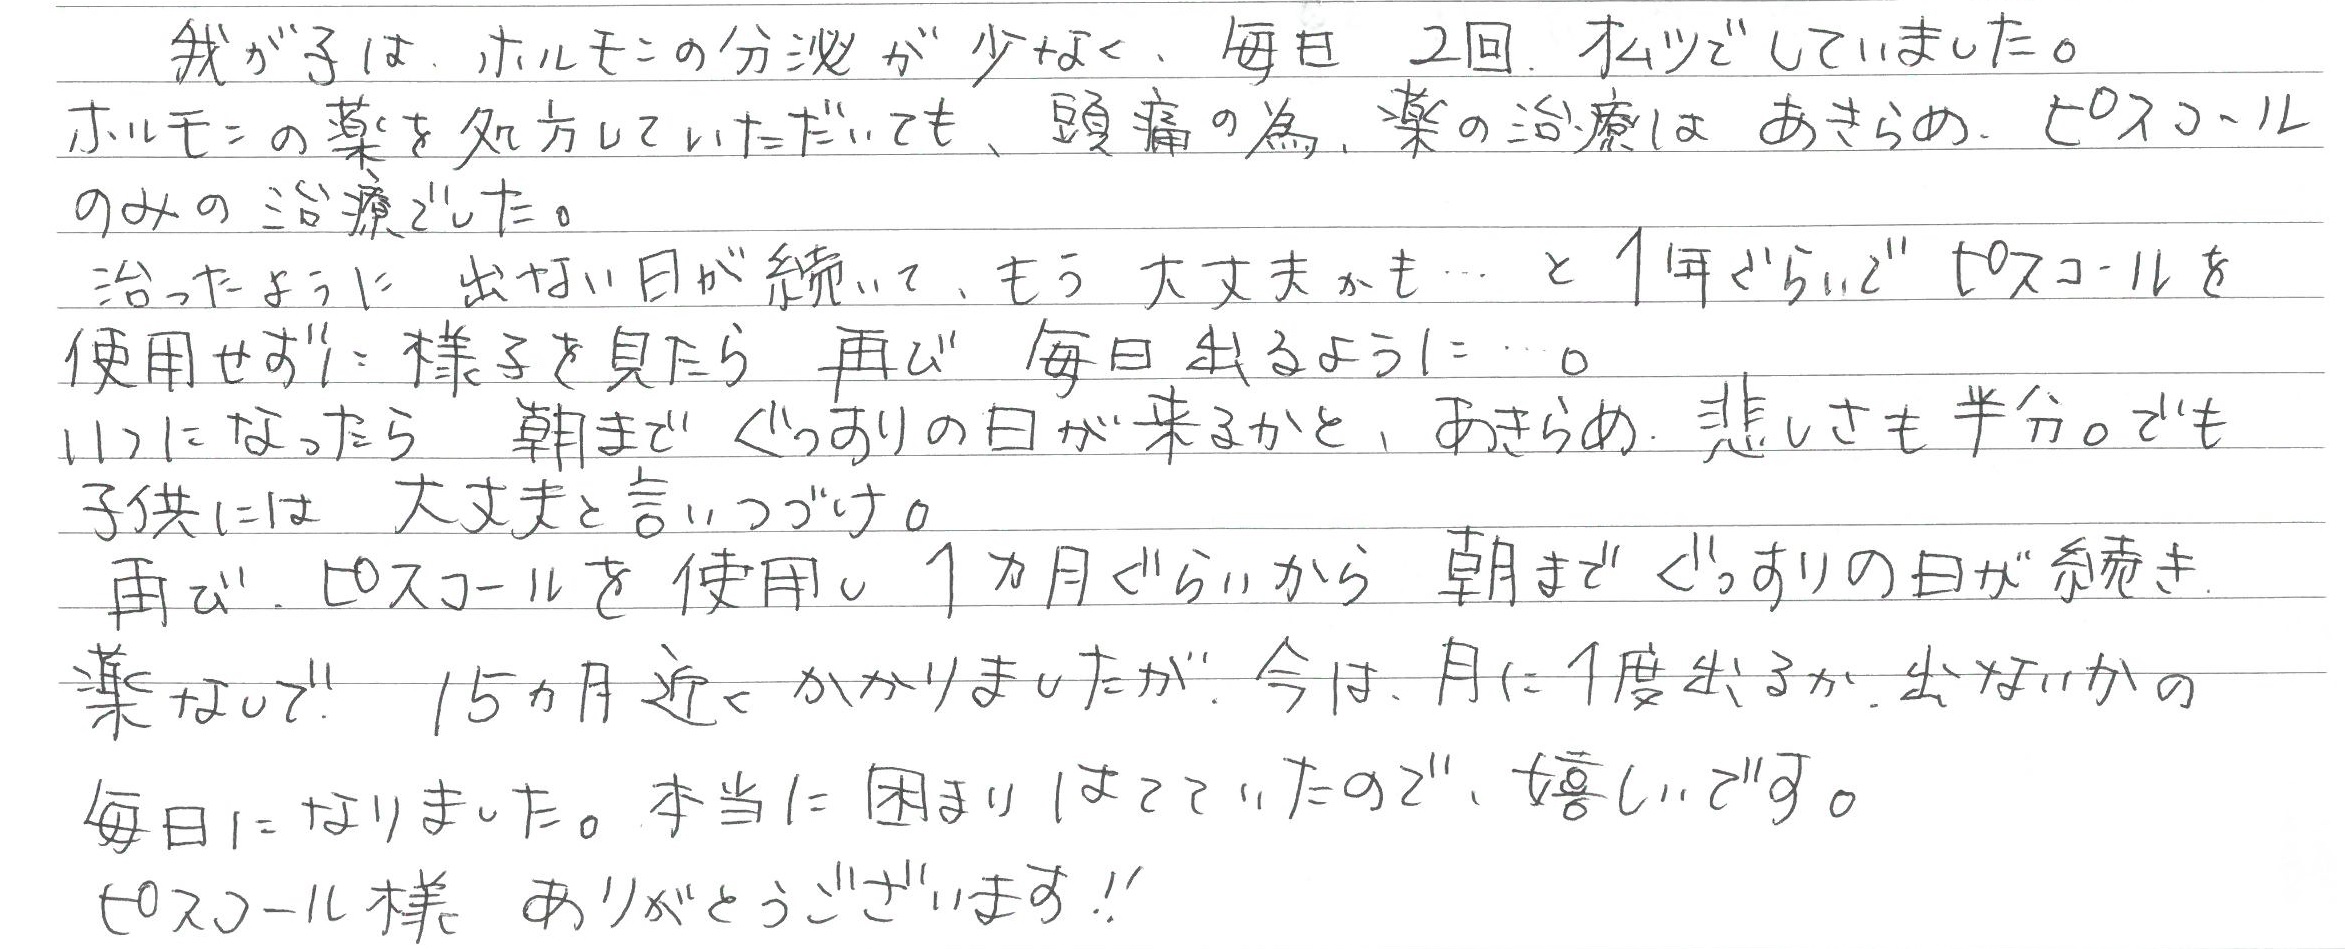 我が子は、ホルモンの分泌が少なく、毎日 2回、オムツでしていました。
ホルモンの薬を処方していただいても、頭痛の為、薬の治療は あきらめ、ピスコール
のみの治療でした。
治ったように 出ない日が続いて、もう 大丈夫かも… と 1年ぐらいで ピスコールを
使用せずに様子を見たら 再び 毎日出るように…。
いつになったら 朝まで ぐっすりの日が来るかと、あきらめ、悲しさも半分。でも
子供には 大丈夫と言いつづけ。
再び、ピスコールを使用し 1カ月ぐらいから 朝まで ぐっすりの日が続き、
薬なしで!! 15カ月近くかかりましたが、今は、月に1度出るか、出ないかの
毎日になりました。本当に困まりはてていたので、嬉しいです。
ピスコール様 ありがとうございます!!